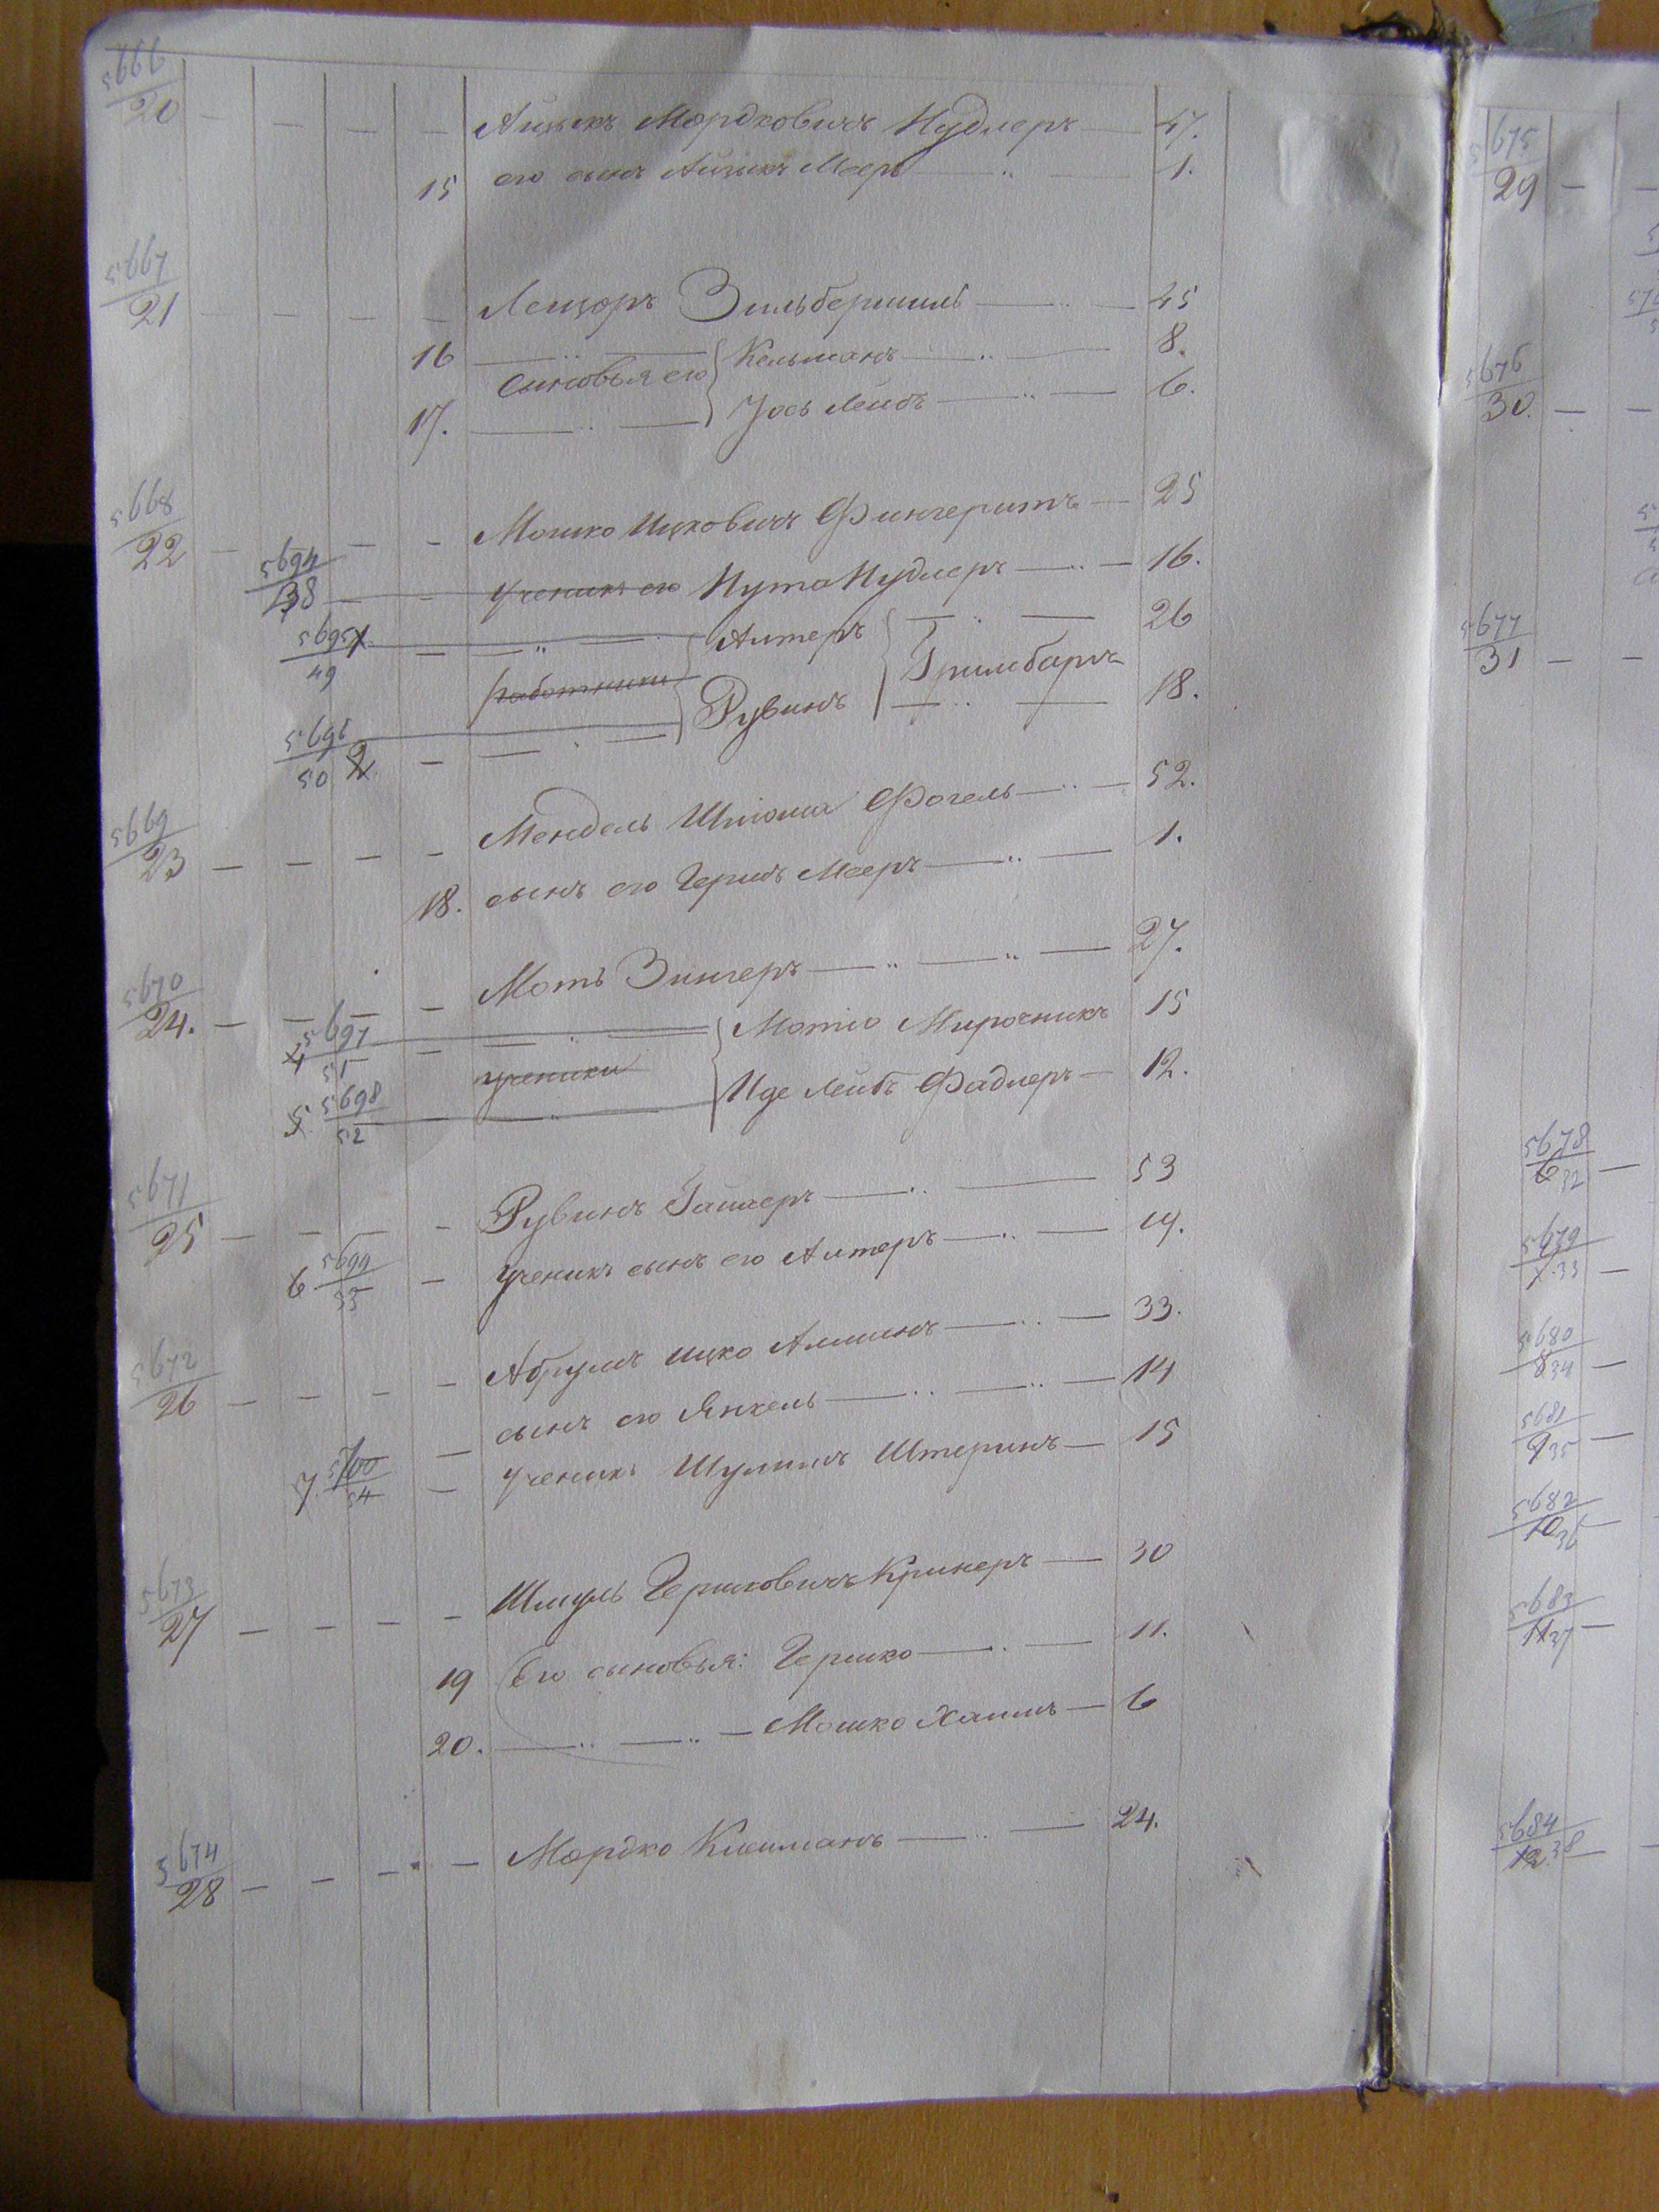 5666
20 — — — — Айзыкъ Мордковичъ Нудлеръ — 47.
15 его сынъ Айзикъ Меер — " — 1.
5667
21 — — — — Лейзоръ Зильбершиль — " — 45
16 — " — Кельманъ — " — 8.
Сыновья его
17. — " — Йось Лейбъ — " — 6.
5668
22 — — — Мошко Ицковичъ Фингеритъ — 25
5694
48 — — ученикъ его Нута Нудлеръ — " — 16.
5695 1
49 — — " — Алтеръ — " — 26
работники Гримбаръ
5696
50 2 — — " — Рувинъ — " — 18.
5669
23 — — — — Мендель Шлiома Фогель — " — 52.
18. сынъ его Гершъ Мееръ — " — 1.
5670
24. — — — — Моть Зингеръ — " — " — 27.
5697
4 51 — — " — Мотiо Мирочникъ 15
ученики
5 5698
52 — " — Иде Лейбъ Фадлеръ — 12.
5671
25 — — — — Рувинъ Гайлеръ — " — 53
5699
6 53 — ученикъ сынъ его Алтеръ — " — 19.
5672
26 — — — — Абрумъ Ицко — " — 33.
— сынъ его Янкель — " — " — 14
5700
7. 54 — Ученикъ Шулимъ Штеринъ — 15
5673
27 — — — — Шмуль Гершковичъ Кринеръ — 30
19 Его сыновья: Гершко — " — 11.
20. — " — " — Мошко Хаимъ — 6
5674
28 — — — — Мордко Клейманъ — " — 24.
5675
29 — —
5676
30. — —
5677
31 — —
5678
6 32 —
5679
33 —
5680
8 34 —
5681
9 35 —
5682
10 36 —
5683
11 37 —
5684
12. 38 — —